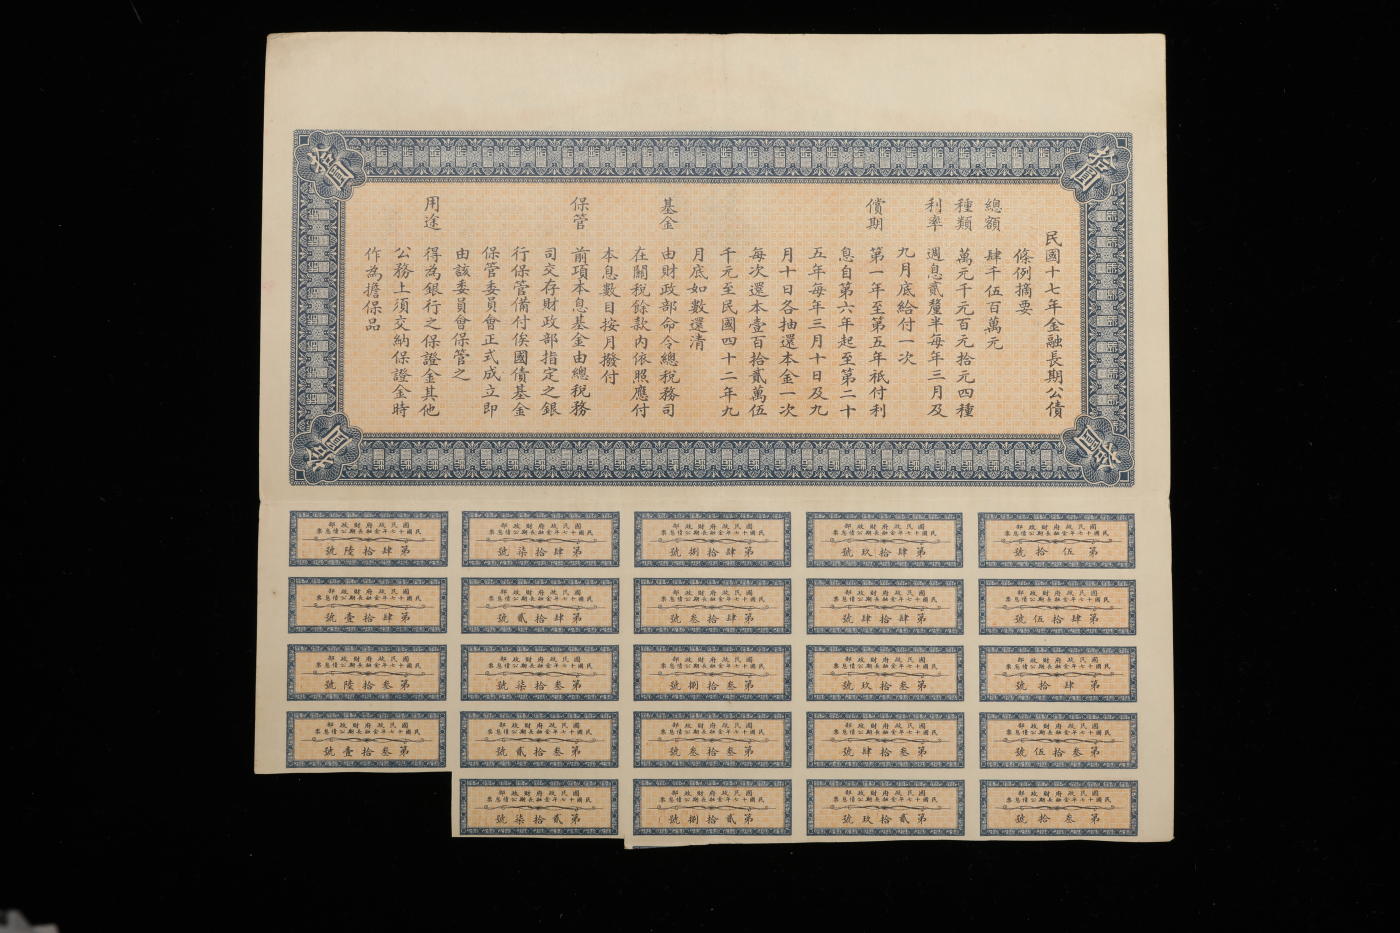 拾圓
拾圓
民國十七年金融長期公債
條例摘要
總額 肆千伍百萬元
種類 萬元千元百元拾元四種
利率 週息貳釐半每年三月及
九月底給付一次
償期 第一年至第五年祇付利
息自第六年起至第二十
五年每年三月十日及九
月十日各抽還本金一次
每次還本壹百拾貳萬伍
千元至民國四十二年九
月底如數還清
基金 由財政部命令總稅務司
在關稅餘款內依照應付
本息數目按月撥付
保管 前項本息基金由總稅務
司交存財政部指定之銀
行保管備付俟國債基金
保管委員會正式成立即
由該委員會保管之
用途 得為銀行之保證金其他
公務上須交納保證金時
作為擔保品
拾圓
拾圓
國民政府財政部
民國十七年金融長期公債息票
第伍拾號
國民政府財政部
民國十七年金融長期公債息票
第肆拾玖號
國民政府財政部
民國十七年金融長期公債息票
第肆拾捌號
國民政府財政部
民國十七年金融長期公債息票
第肆拾柒號
國民政府財政部
民國十七年金融長期公債息票
第肆拾陸號
國民政府財政部
民國十七年金融長期公債息票
第肆拾伍號
國民政府財政部
民國十七年金融長期公債息票
第肆拾肆號
國民政府財政部
民國十七年金融長期公債息票
第肆拾叁號
國民政府財政部
民國十七年金融長期公債息票
第肆拾貳號
國民政府財政部
民國十七年金融長期公債息票
第肆拾壹號
國民政府財政部
民國十七年金融長期公債息票
第肆拾號
國民政府財政部
民國十七年金融長期公債息票
第叁拾玖號
國民政府財政部
民國十七年金融長期公債息票
第叁拾捌號
國民政府財政部
民國十七年金融長期公債息票
第叁拾柒號
國民政府財政部
民國十七年金融長期公債息票
第叁拾陸號
國民政府財政部
民國十七年金融長期公債息票
第叁拾伍號
國民政府財政部
民國十七年金融長期公債息票
第叁拾肆號
國民政府財政部
民國十七年金融長期公債息票
第叁拾叁號
國民政府財政部
民國十七年金融長期公債息票
第叁拾貳號
國民政府財政部
民國十七年金融長期公債息票
第叁拾壹號
國民政府財政部
民國十七年金融長期公債息票
第叁拾號
國民政府財政部
民國十七年金融長期公債息票
第貳拾玖號
國民政府財政部
民國十七年金融長期公債息票
第貳拾捌號
國民政府財政部
民國十七年金融長期公債息票
第貳拾柒號